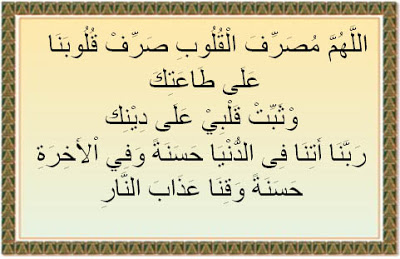 اللَّهُمَّ مُصَرِّفَ الْقُلُوبِ صَرِّفْ قُلُوبَنَا
عَلَى طَاعَتِكَ
وْثَبِّتْ قَلْبِيْ عَلَى دِيْنِك
رَبَّنَا أَتِنَا فِى الدُّنْيَا حَسَنَةً وَفِي اْلأَخِرَةِ
حَسَنَةً وَقِنَا عَذَابَ النَّارِ